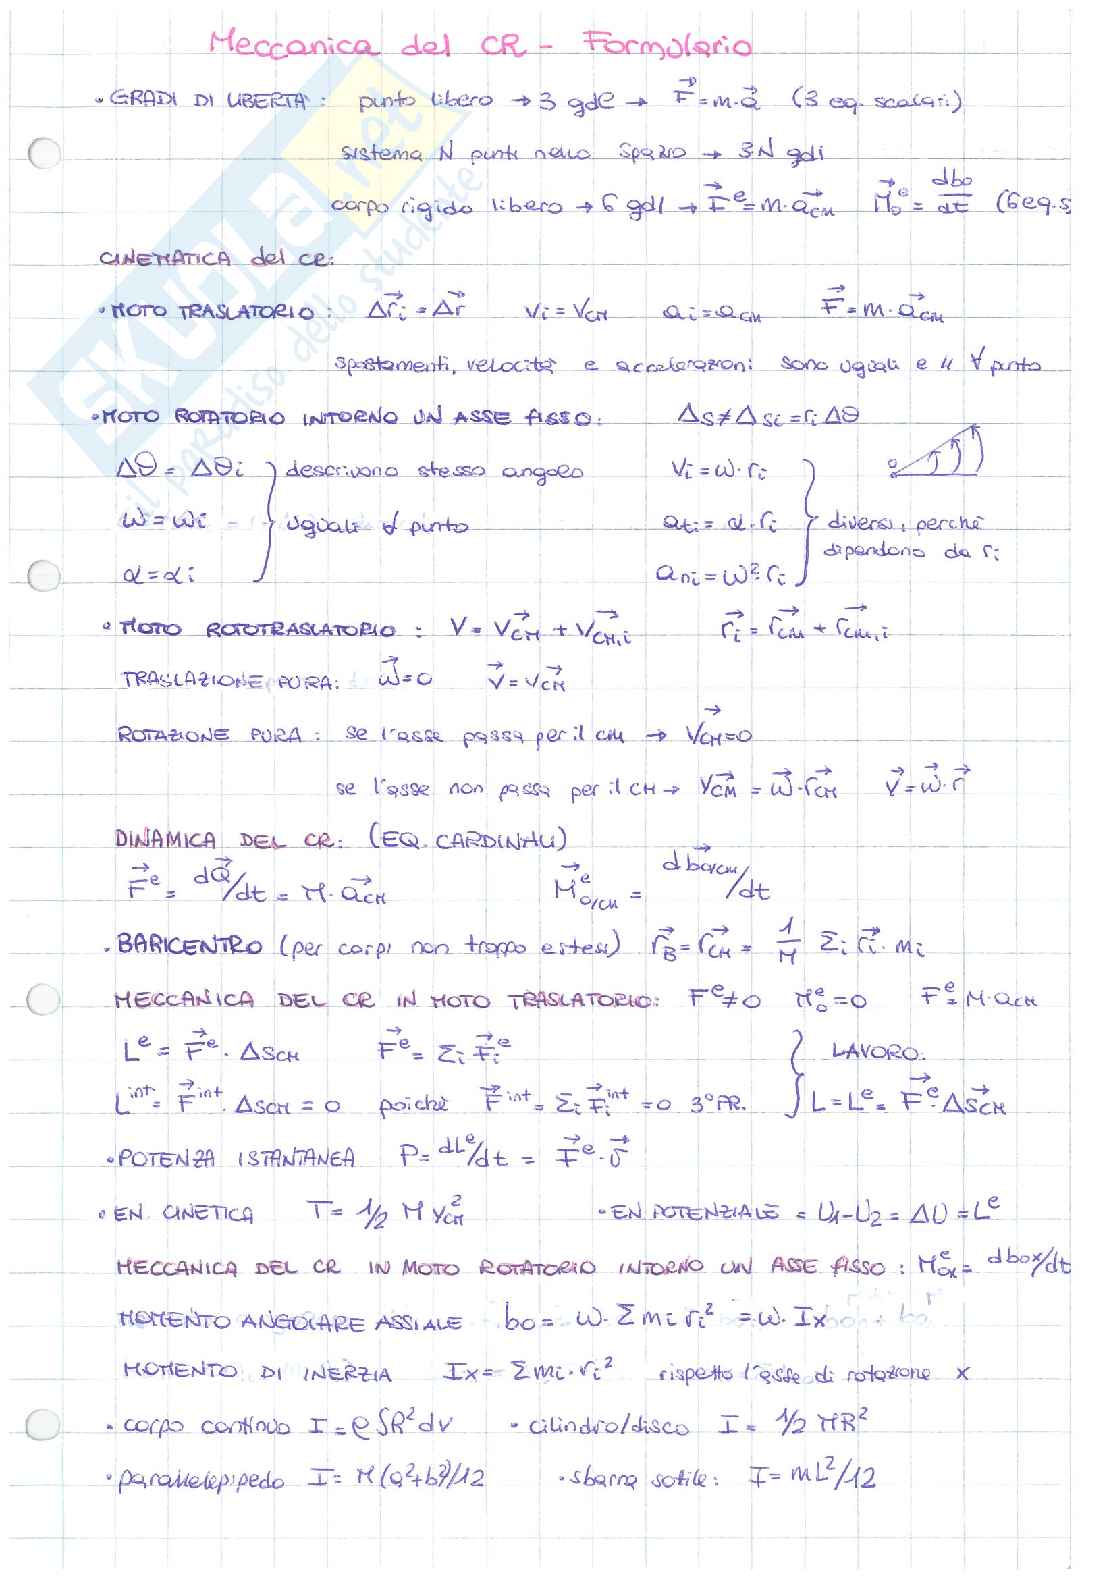 Meccanica del CR - Formulario
• GRADI DI LIBERTA': punto libero → 3 gdl → F⃗ = m·a⃗ (3 eq. scalari)
sistema N punti nello spazio → 3N gdl
corpo rigido libero → 6 gdl → F⃗ᵉ = m·a⃗CM M⃗ₒᵉ = dbo/dt (6 eq. s
CINEMATICA del CR:
• MOTO TRASLATORIO: Δr⃗i = Δr⃗ vi = vCM ai = aCM F⃗ = m·a⃗CM
spostamenti, velocità e accelerazioni sono uguali e // ∀ punto
• MOTO ROTATORIO INTORNO UN ASSE FISSO: Δs ≠ Δsi = ri Δθ
Δθ = Δθi } descrivono stesso angolo vi = ω·ri
ω = ωi uguali ∀ punto ati = α·ri } diversi, perché dipendono da ri
α = αi ani = ω²·ri
• MOTO ROTOTRASLATORIO: V = V⃗CM + V⃗CM,i r⃗i = r⃗CM + r⃗CM,i
TRASLAZIONE PURA: ω⃗ = 0 v⃗ = v⃗CM
ROTAZIONE PURA: se l'asse passa per il CM → V⃗CM = 0
se l'asse non passa per il CM → v⃗CM = ω⃗·r⃗CM v⃗ = ω⃗·r⃗
DINAMICA DEL CR: (EQ. CARDINALI)
F⃗ᵉ = dQ⃗/dt = M·a⃗CM M⃗ᵉO/CM = db⃗O/CM/dt
• BARICENTRO (per corpi non troppo estesi) r⃗B = r⃗CM = 1/M Σi r⃗i·mi
MECCANICA DEL CR IN MOTO TRASLATORIO: Fᵉ ≠ 0 Mₒᵉ = 0 Fᵉ = M·aCM
Lᵉ = F⃗ᵉ·ΔsCM F⃗ᵉ = Σi F⃗iᵉ } LAVORO:
Lⁱⁿᵗ = F⃗ⁱⁿᵗ·ΔsCM = 0 poiché F⃗ⁱⁿᵗ = Σi F⃗iⁱⁿᵗ = 0 3° PR. L = Lᵉ = F⃗ᵉ·Δs⃗CM
• POTENZA ISTANTANEA P = dLᵉ/dt = F⃗ᵉ·v⃗
• EN. CINETICA T = 1/2 M v²CM • EN. POTENZIALE = U1-U2 = ΔU = Lᵉ
MECCANICA DEL CR IN MOTO ROTATORIO INTORNO UN ASSE FISSO: Mᵉox = dbox/dt
MOMENTO ANGOLARE ASSIALE bo = ω·Σ mi ri² = ω·Ix
MOMENTO DI INERZIA Ix = Σ mi·ri² rispetto l'asse di rotazione x
• corpo continuo I = ρ∫R²dv • cilindro/disco I = 1/2 MR²
• parallelepipedo I = M(a²+b²)/12 • sbarra sottile: I = mL²/12
SKUOLA.net
il paradiso dello studente